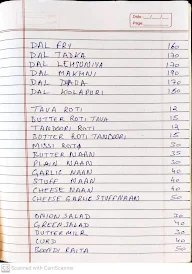 Date
Page
DAL FRY 160
DAL TADKA 170
DAL LEHSUNIYA 170
DAL MAKHNI 190
DAL DABA 170
DAL KOLAPURI 180
TAVA ROTI 12
BUTTER ROTI TAVA 15
TANDOORI ROTI 12
BUTTER ROTI TANDOORI 15
MISSI ROTA
BUTTER NAAN 35
PLAIN NAAN 30
GARLIC NAAN 40
STUFF NAAN 40
CHEESE NAAN 40
CHEESE GARLIC STUFFNAAN 50
ONION SALAD 30
GREEN SALAD 40
BUTTER MILK 30
CURD 40
BOONDI RAITA 50
Scanned with CamScanner